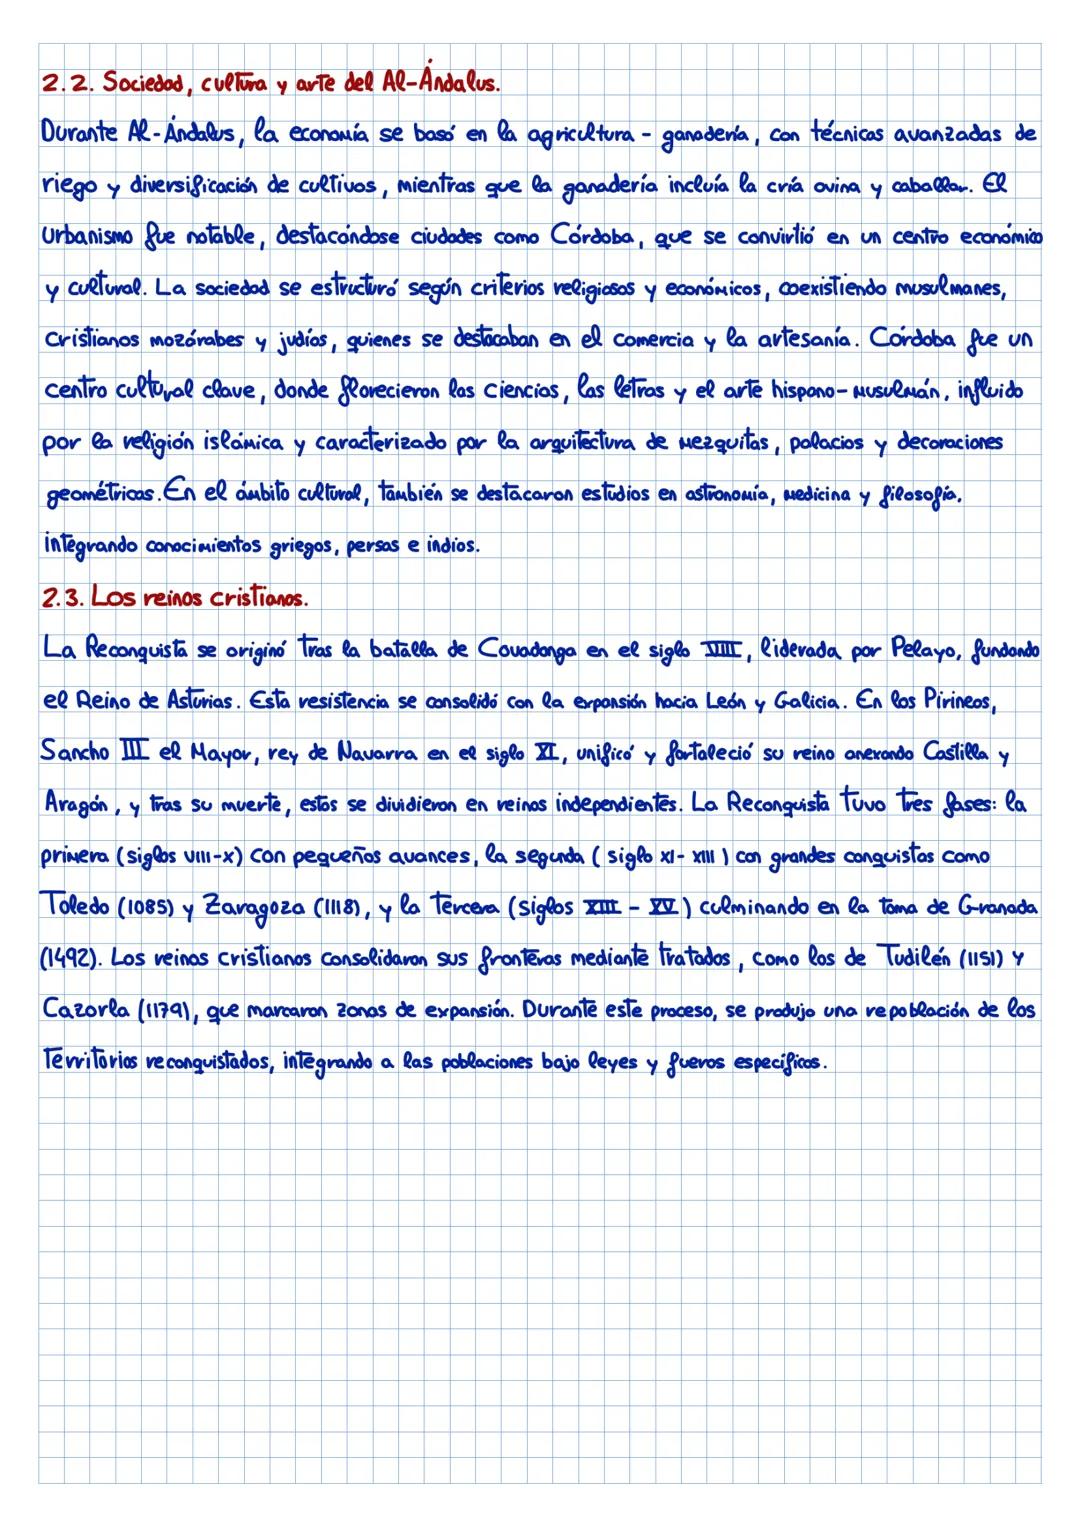 2.2. Sociedad, cultura y arte del Al-Ándalus.
Durante Al-Ándalus, la economía se basó en la agricultura - ganadería, con técnicas avanzadas de
riego y diversificación de cultivos, mientras que la ganadería incluía la cría ovina y caballar. El
urbanismo fue notable, destacándose ciudades como Córdoba, que se convirtió en un centro económico
y cultural. La sociedad se estructuró según criterios religiosos y económicos, coexistiendo musulmanes,
cristianos mozárabes y judíos, quienes se destacaban en el comercio y la artesanía. Córdoba fue un
centro cultural clave, donde florecieron las ciencias, las letras y el arte hispano-musulmán, influido
por la religión islámica y caracterizado por la arquitectura de mezquitas, palacios y decoraciones
geométricas. En el ámbito cultural, también se destacaron estudios en astronomía, medicina y filosofía,
integrando conocimientos griegos, persas e indios.
2.3. Los reinos cristianos.
La Reconquista se originó tras la batalla de Covadonga en el siglo VIII, liderada por Pelayo, fundando
el Reino de Asturias. Esta resistencia se consolidó con la expansión hacia León y Galicia. En los Pirineos,
Sancho III el Mayor, rey de Navarra en el siglo XI, unificó y fortaleció su reino anexando Castilla y
Aragón, y tras su muerte, estos se dividieron en reinos independientes. La Reconquista tuvo tres fases: la
primera (siglos VIII-X) con pequeños avances, la segunda ( siglo XI- XIII ) con grandes conquistas como
Toledo (1085) y Zaragoza (1118), y la tercera (siglos XIII - XV) culminando en la toma de Granada
(1492). Los reinos cristianos consolidaron sus fronteras mediante tratados, como los de Tudilén (1151) y
Cazorla (1179), que marcaron zonas de expansión. Durante este proceso, se produjo una repoblación de los
territorios reconquistados, integrando a las poblaciones bajo leyes y fueros específicos.